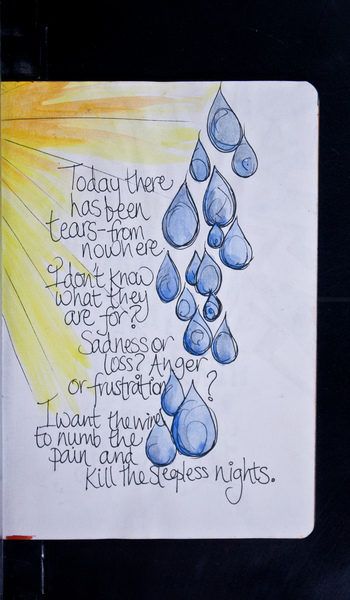 Today there
has been
tears-from
nowhere.
I don't know
what they
are for?
Sadness or
loss? Anger
or frustration?
I want the wine
to numb the
pain and
kill the sleepless nights.